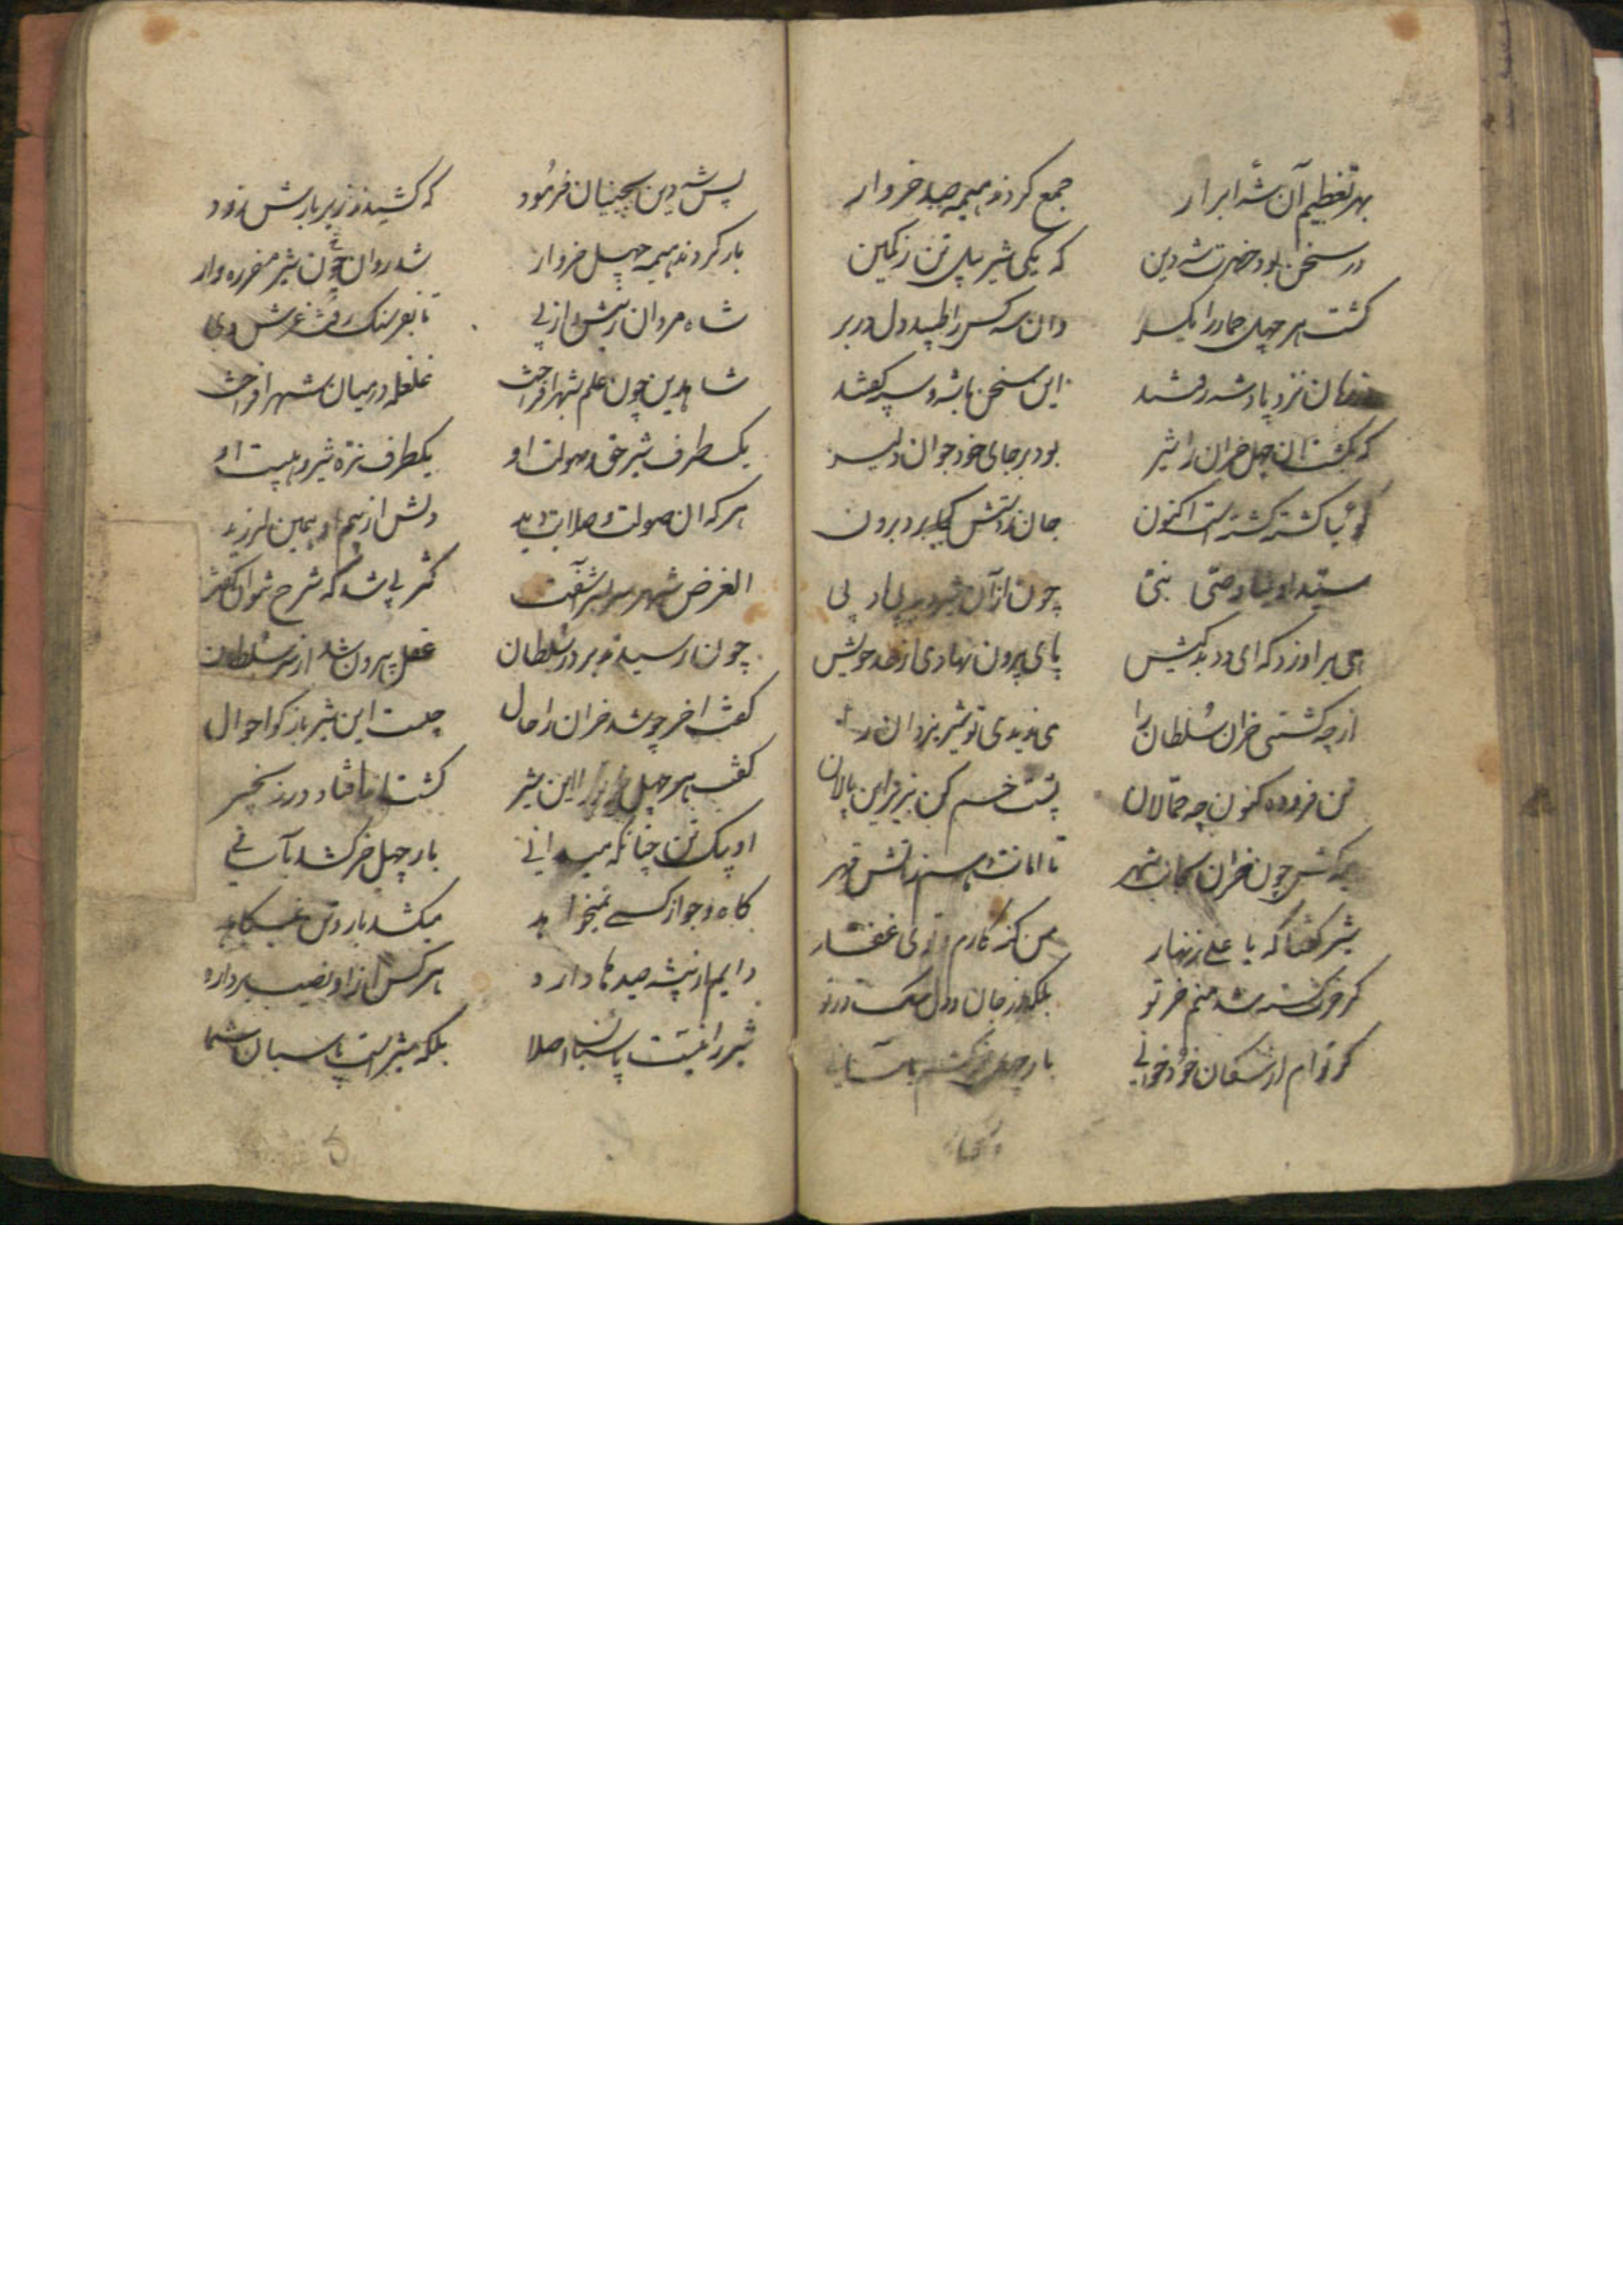 بهر تعظیم آن شه ابرار جمع کردند هیمه صد خروار
در سخن بود حضرت شه دین که یکی شیر پیل تن ز کمین
کشت هر چهل حمار را یکسر وان سه کس را طپید دل در بر
نزد پادشه رفتند این سخن با شه و سپه کفتند
که بکشت آن چهل خران را شیر بود بر جای خود جوان دلیر
کوئیا کشته کشته است اکنون جان ز دستش کی برد برون
سید اولیا وصی نبی چون از آن شیر دید بی ادبی
هی بر او زد که ای دد بدکیش پای بیرون نهادی از حد خویش
از چه کشتی خران سلطان را می ندیدی تو شیر یزدان را
تن فرو ده کنون چه حمالان پشت خم کن بزیر این پالان
چون خران بجانب شهر تا امانت دهم ز آتش قهر
شیر کفتا که یا علی زنهار من کنه کارم و توئی غفار
کر خری کشته شد منم خر تو بلکه از جان و دل سک در تو
کر تو ام از سکان خود خوانی بار چهل خر کشم بآسانی
پس شه دین بچینیان فرمود که کشیدند زیر بارش زود
بار کردند هیمه چهل خروار شد روان چون شیر
شاه مردان ز پیش و از پی تا بفرسنک رفت غرش وی
شاه دین چون علم بشهر افراخت غلغله در میان شهر انداخت
یکطرف شیر حق و صولت او یکطرف نره شیر و هیبت او
هر که آن صولت و صلابت دید دلش از سهم او همین لرزید
الغرض شهر سربسر آشفت
چون رسیدند بر در سلطان عقل بیرون شد از سر سلطان
کفت آخر چو شد خران را حال چیست این شیر باز کو احوال
کفت هر چهل را این شیر کشت
او یک تن چنانکه میدانی بار چهل خر کشد بآسانی
کاه و جو از کسی نمیخواهد میکشد بار و تن نمیکاهد
دایم از بیشه صیدها دارد هر کس از او نصیب بردارد
شیر را نیست پاسبان اصلا بلکه شیر است پاسبان شما